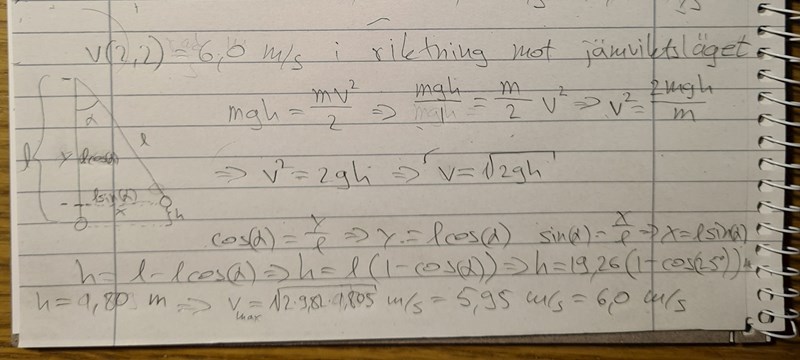 v(2,2) = 6,0 m/s i riktning mot jämviktsläget
mgh = mv²/2 => mgh/1 = m/2 v² => v² = 2mgh/m
α l
=> v² = 2gh => v = √2gh
l y lcos(α)
lsin(α)
x h
cos(α) = y/l => y = lcos(α) sin(α) = x/l => x = lsin(α)
h = l - lcos(α) => h = l(1-cos(α)) => h = 19,26(1-cos(25°)) m
h = 1,80 m => v_max = √2·9,82·1,805 m/s = 5,95 m/s = 6,0 m/s